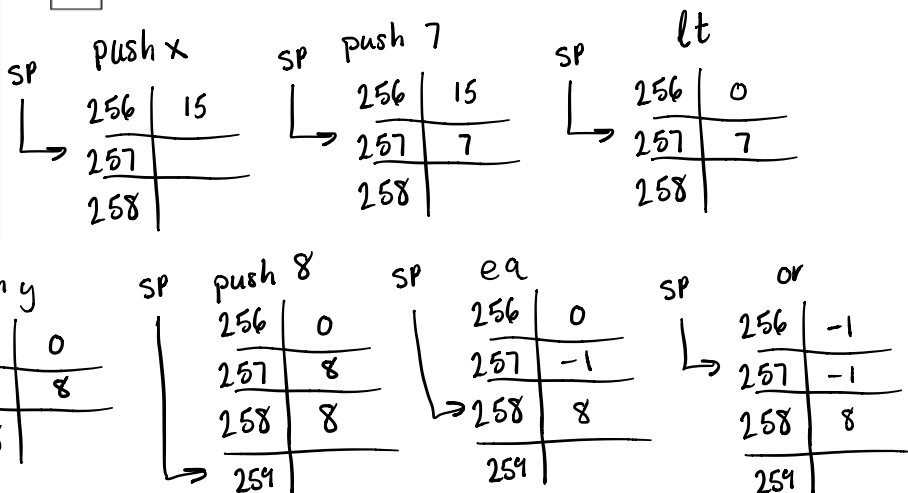 SP push x
256 15
257
258
SP push 7
256 15
257 7
258
SP lt
256 0
257 7
258
y
0
8
SP push 8
256 0
257 8
258 8
259
SP eq
256 0
257 -1
258 8
259
SP or
256 -1
257 -1
258 8
259